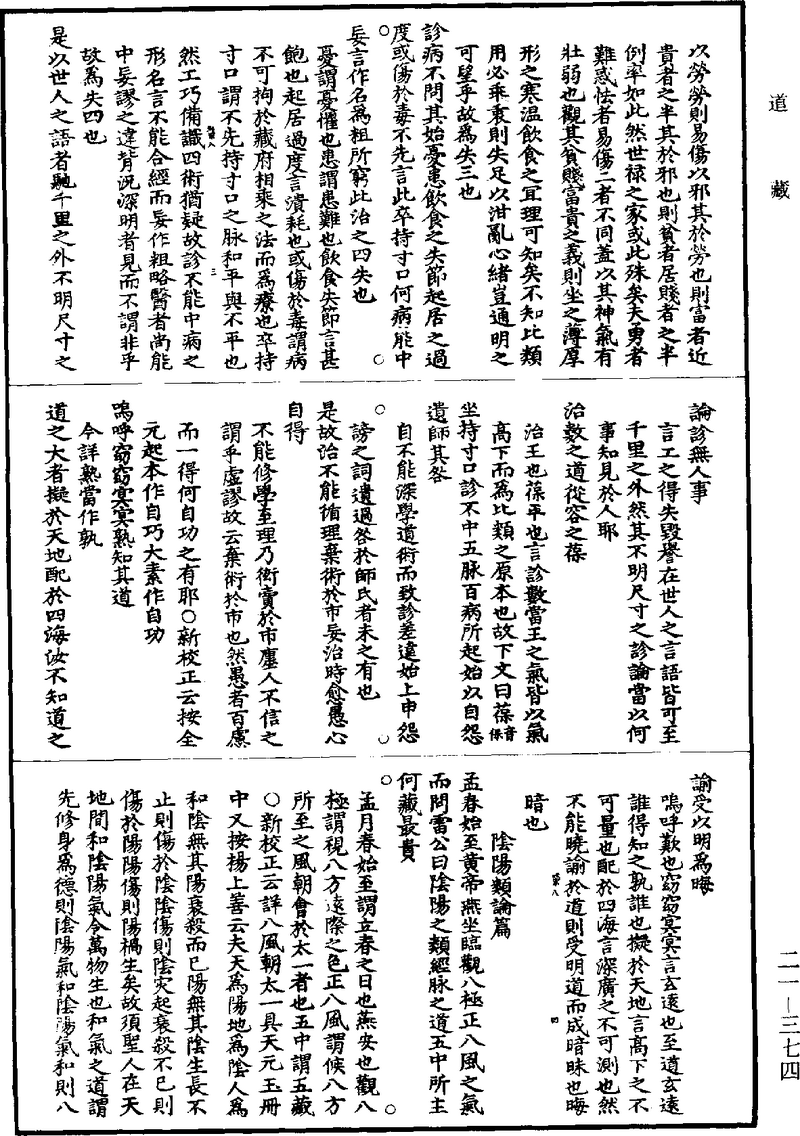 道藏
以勞勞則易傷以邪其於勞也則富者近
貴者之半其於邪也則貧者居賤者之半
例率如此然世祿之家或此殊矣夫勇者
難惑怯者易傷二者不同蓋以其神氣有
壯弱也觀其貧賤富貴之義則坐之薄厚
形之寒溫飲食之宜理可知矣不知比類
用必乖衰則失足以泔亂心緒豈通明之
可望乎故為失三也
診病不問其始憂患飲食之失節起居之過
度或傷於毒不先言此卒持寸口何病能中
妄言作名為粗所窮此治之四失也
憂謂憂懼也患謂患難也飲食失節言甚
飽也起居過度言潰耗也或傷於毒謂病
不可拘於藏府相乘之法而為療也卒持
寸口謂不先持寸口之脉和平與不平也
然工巧備識四術猶疑故診不能中病之
形名言不能合經而妄作粗略醫者尚能
中妄謬之違背況深明者見而不謂非乎
故為失四也
是以世人之語者馳千里之外不明尺寸之
論診無人事
言工之得失毀譽在世人之言語皆可至
千里之外然其不明尺寸之診論當以何
事知見於人耶
治數之道從容之葆
治王也葆平也言診數當王之氣皆以氣
高下而為比類之原本也故下文曰葆音保
坐持寸口診不中五脉百病所起始以自怨
遺師其咎
自不能深學道術而致診差違始上申怨
謗之詞遺過咎於師氏者未之有也
是故治不能循理棄術於市妄治時愈愚心
自得
不能修學至理乃衒賣於市廛人不信之
謂乎虛謬故云棄術於市也然愚者百慮
而一得何自功之有耶○新校正云按全
元起本作自巧大素作自功
嗚呼窈窈冥冥熟知其道
今詳熟當作孰
道之大者擬於天地配於四海汝不知道之
諭受以明為晦
嗚呼歎也窈窈冥冥言玄遠也至道玄遠
誰得知之孰誰也擬於天地言高下之不
可量也配於四海言深廣之不可測也然
不能曉諭於道則受明道而成暗昧也晦
暗也
陰陽類論篇
孟春始至黃帝燕坐臨觀八極正八風之氣
而問雷公曰陰陽之類經脉之道五中所主
何藏最貴
孟月春始至謂立春之日也燕安也觀八
極謂視八方遠際之色正八風謂候八方
所至之風朝會於太一者也五中謂五藏
○新校正云詳八風朝太一具天元玉冊
中又按楊上善云夫天為陽地為陰人為
和陰無其陽衰殺而已陽無其陰生長不
止則傷於陰陰傷則陰灾起衰殺不已則
傷於陽陽傷則陽禍生矣故須聖人在天
地間和陰陽氣令萬物生也和氣之道謂
先修身為德則陰陽氣和陰陽氣和則八
二一—三七四